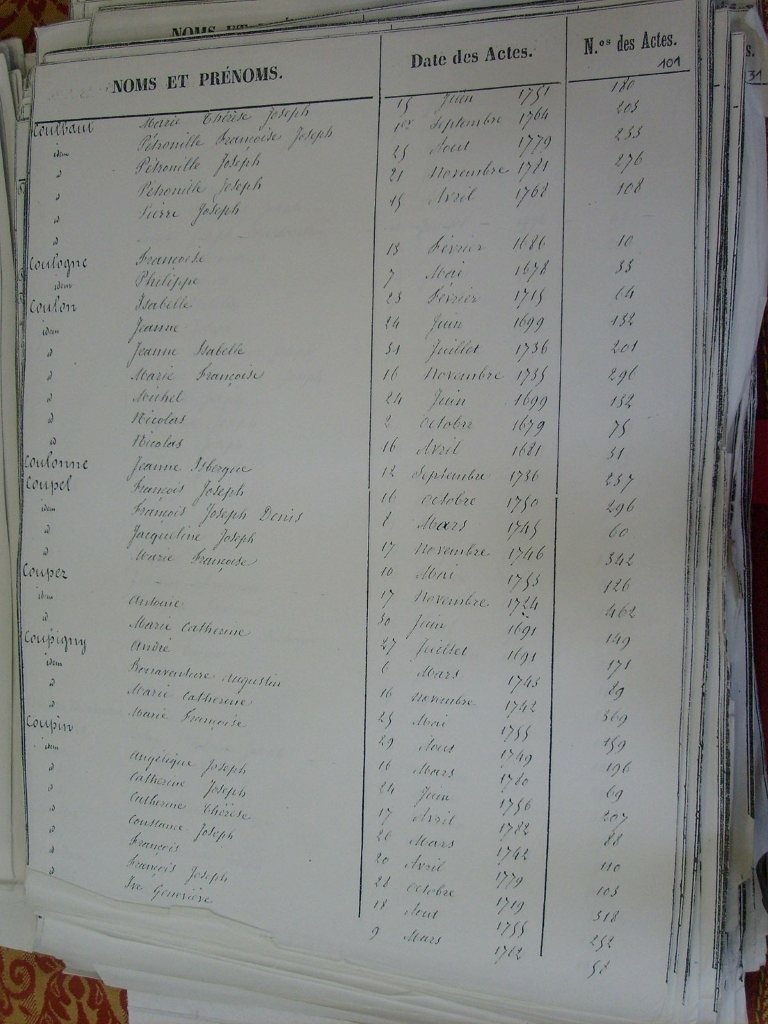 NOMS ET PRÉNOMS. Date des Actes. N.os des Actes.
101
Coulbaut Marie Thérèse Joseph 15 Juin 1751 180
idem Pétronille Françoise Joseph 1er Septembre 1764 203
d Pétronille Joseph 25 Aout 1779 233
d Petronille Joseph 21 Novembre 1781 276
d Pierre Joseph 15 Avril 1768 108
d
Coulogne Françoise 13 Février 1686 10
idem Philippe 7 Mai 1678 33
Coulon Isabelle 23 Février 1715 64
idem Jeanne 24 Juin 1699 132
d Jeanne Isabelle 31 Juillet 1736 201
d Marie Françoise 16 Novembre 1735 296
d Michel 24 Juin 1699 132
d Nicolas 2 Octobre 1679 75
d Nicolas 16 Avril 1681 31
Coulonne Jeanne Isbergue 12 Septembre 1736 237
Coupel François Joseph 16 Octobre 1750 296
idem François Joseph Denis 8 Mars 1745 60
d Jacqueline Joseph 17 Novembre 1746 342
d Marie Françoise 10 Mai 1753 126
Coupez 17 Novembre 1724 462
idem Antoine 30 Juin 1691 149
d Marie Catherine 27 Juillet 1691 171
Coupigny André 6 Mars 1743 29
idem Bonaventure Augustin 16 Novembre 1742 369
d Marie Catherine 25 Mai 1755 159
d Marie Françoise 29 Aout 1749 196
Coupin 16 Mars 1780 69
idem Angélique Joseph 24 Juin 1756 207
d Catherine Joseph 17 Avril 1782 88
d Catherine Thérèse 26 Mars 1742 110
d Constance Joseph 20 Avril 1779 103
d François 28 Octobre 1719 318
d François Joseph 18 Aout 1755 252
d Ive Geneviève 9 Mars 1762 58
31